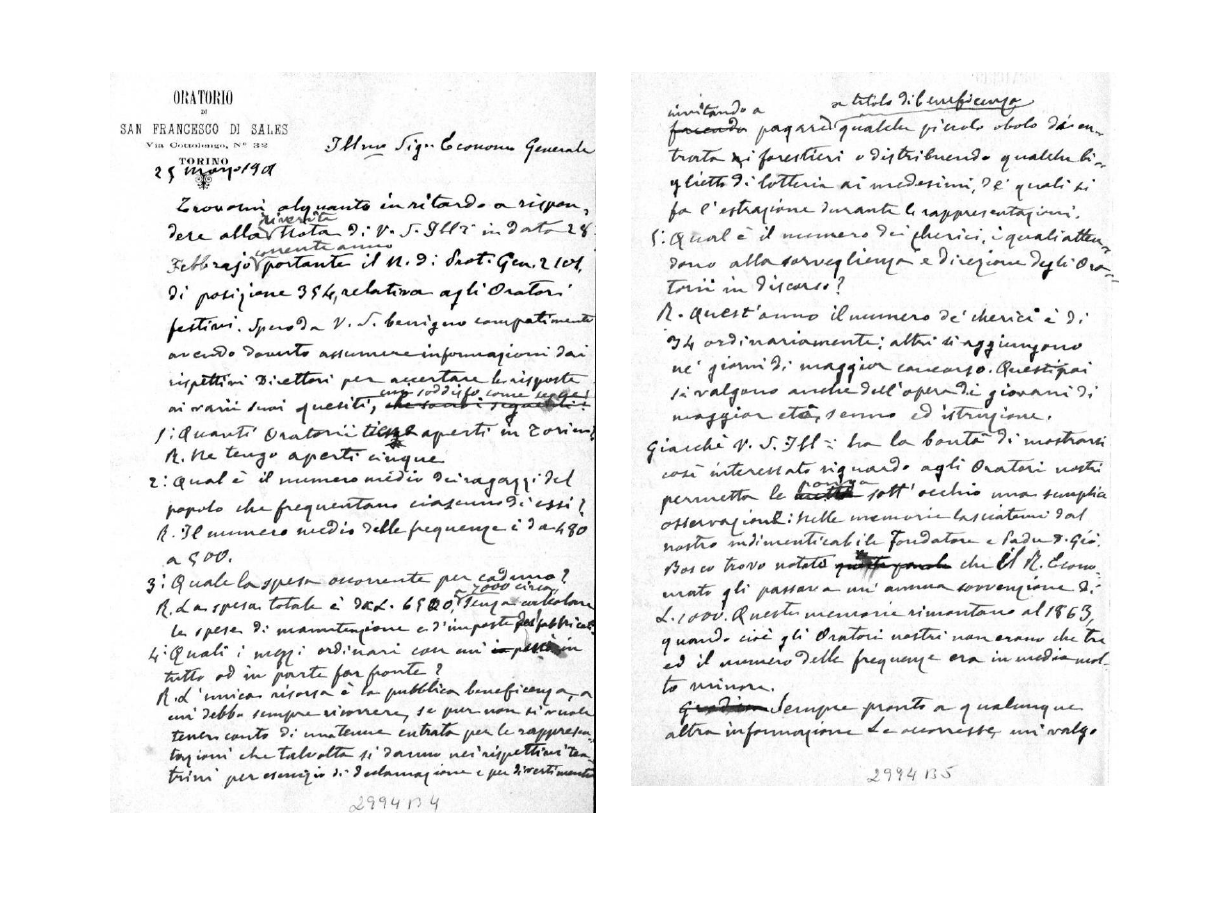 ORATORIO
DI
SAN FRANCESCO DI SALES
Via Cottolengo, N° 32
TORINO
25 marzo 1901
Ill.mo Sig. Economo Generale
Trovomi alquanto in ritardo a rispon-
riverita
dere alla Nota di V. S. Ill.a in data 28
corrente anno
Febbrajo portante il N. di Prot. Gen. 2101,
di posizione 354, relativa agli Oratori
festivi. Spero da V. S. benigno compatimento
avendo dovuto assumere informazioni dai
rispettivi Direttori per accertare le risposte
soddisfo come segue
ai varii suoi quesiti,
1: Quanti Oratorii aperti in Torino?
R. Ne tengo aperti cinque
2: Qual è il numero medio dei ragazzi del
popolo che frequentano ciascuno di essi?
R. Il numero medio delle frequenze è da 480
a 500.
3: Quale la spesa occorrente per caduno?
7000 circa,
R. La spesa totale è da L. 6500, senza calcolare
le spese di manutenzione e d'imposte pei fabbricati.
4: Quali i mezzi ordinari con cui in
tutto od in parte far fronte?
R. L'unica risorsa è la pubblica beneficenza, a
cui debbo sempre ricorrere, se pur non si vuole
tener conto di una tenue entrata per le rappresen-
tazioni che talvolta si danno nei rispettivi tea-
trini per esercizio di declamazione e per divertimento
2994 B 4
invitando a
a titolo di beneficenza
facendo pagare qualche piccolo obolo d'en-
trata ai forestieri o distribuendo qualche bi-
glietto di lotteria ai medesimi, de' quali si
fa l'estrazione durante le rappresentazioni.
5: Qual è il numero dei chierici, i quali atten-
dono alla sorveglienza e direzione degli Ora-
torii in discorso?
R. Quest'anno il numero de' chierici è di
34 ordinariamente; altri si aggiungono
ne' giorni di maggior concorso. Questi poi
si valgono anche dell'opera di giovani di
maggior età, senno ed istruzione.
Giacchè V. S. Ill.a ha la bontà di mostrarsi
così interessato riguardo agli Oratori nostri
ponga
permetta le metta sott'occhio una semplice
osservazione: Nelle memorie lasciatemi dal
nostro indimenticabile Fondatore e Padre D. Gio.
Bosco trovo notato che il R. Econo-
mato gli passava un'annua sovvenzione di
L. 1000. Queste memorie rimontano al 1863,
quando cioè gli Oratori nostri non erano che tre
ed il numero delle frequenze era in media mol-
to minore.
Sempre pronto a qualunque
altra informazione Le occorresse, mi valgo
2994 B 5